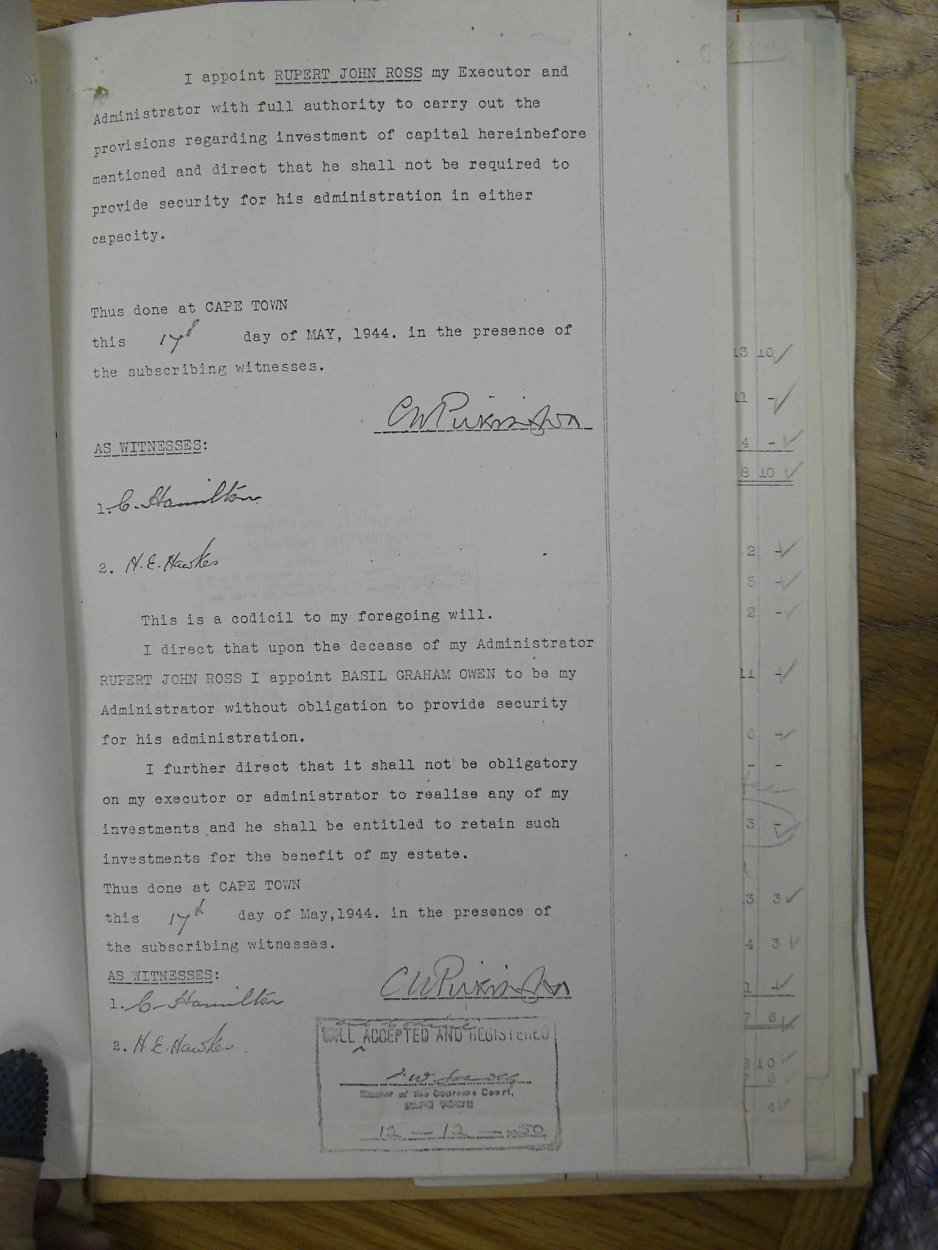 I appoint RUPERT JOHN ROSS my Executor and
Administrator with full authority to carry out the
provisions regarding investment of capital hereinbefore
mentioned and direct that he shall not be required to
provide security for his administration in either
capacity.
Thus done at CAPE TOWN
this 17th day of MAY, 1944. in the presence of
the subscribing witnesses.
C W Pilkington
AS WITNESSES:
1. C. Hamilton
2. H. E. Hawkes
This is a codicil to my foregoing will.
I direct that upon the decease of my Administrator
RUPERT JOHN ROSS I appoint BASIL GRAHAM OWEN to be my
Administrator without obligation to provide security
for his administration.
I further direct that it shall not be obligatory
on my executor or administrator to realise any of my
investments and he shall be entitled to retain such
investments for the benefit of my estate.
Thus done at CAPE TOWN
this 17th day of May, 1944. in the presence of
the subscribing witnesses.
AS WITNESSES:
C W Pilkington
1. C. Hamilton
2. H. E. Hawkes
WILL ACCEPTED AND REGISTERED
Master of the Supreme Court,
CAPE TOWN
12 - 12 - 50
13 10
11 -
4 -
8 10
2 -
5 -
2 -
11 -
6 -
- -
3 -
3 3
4 3
1 -
7 6